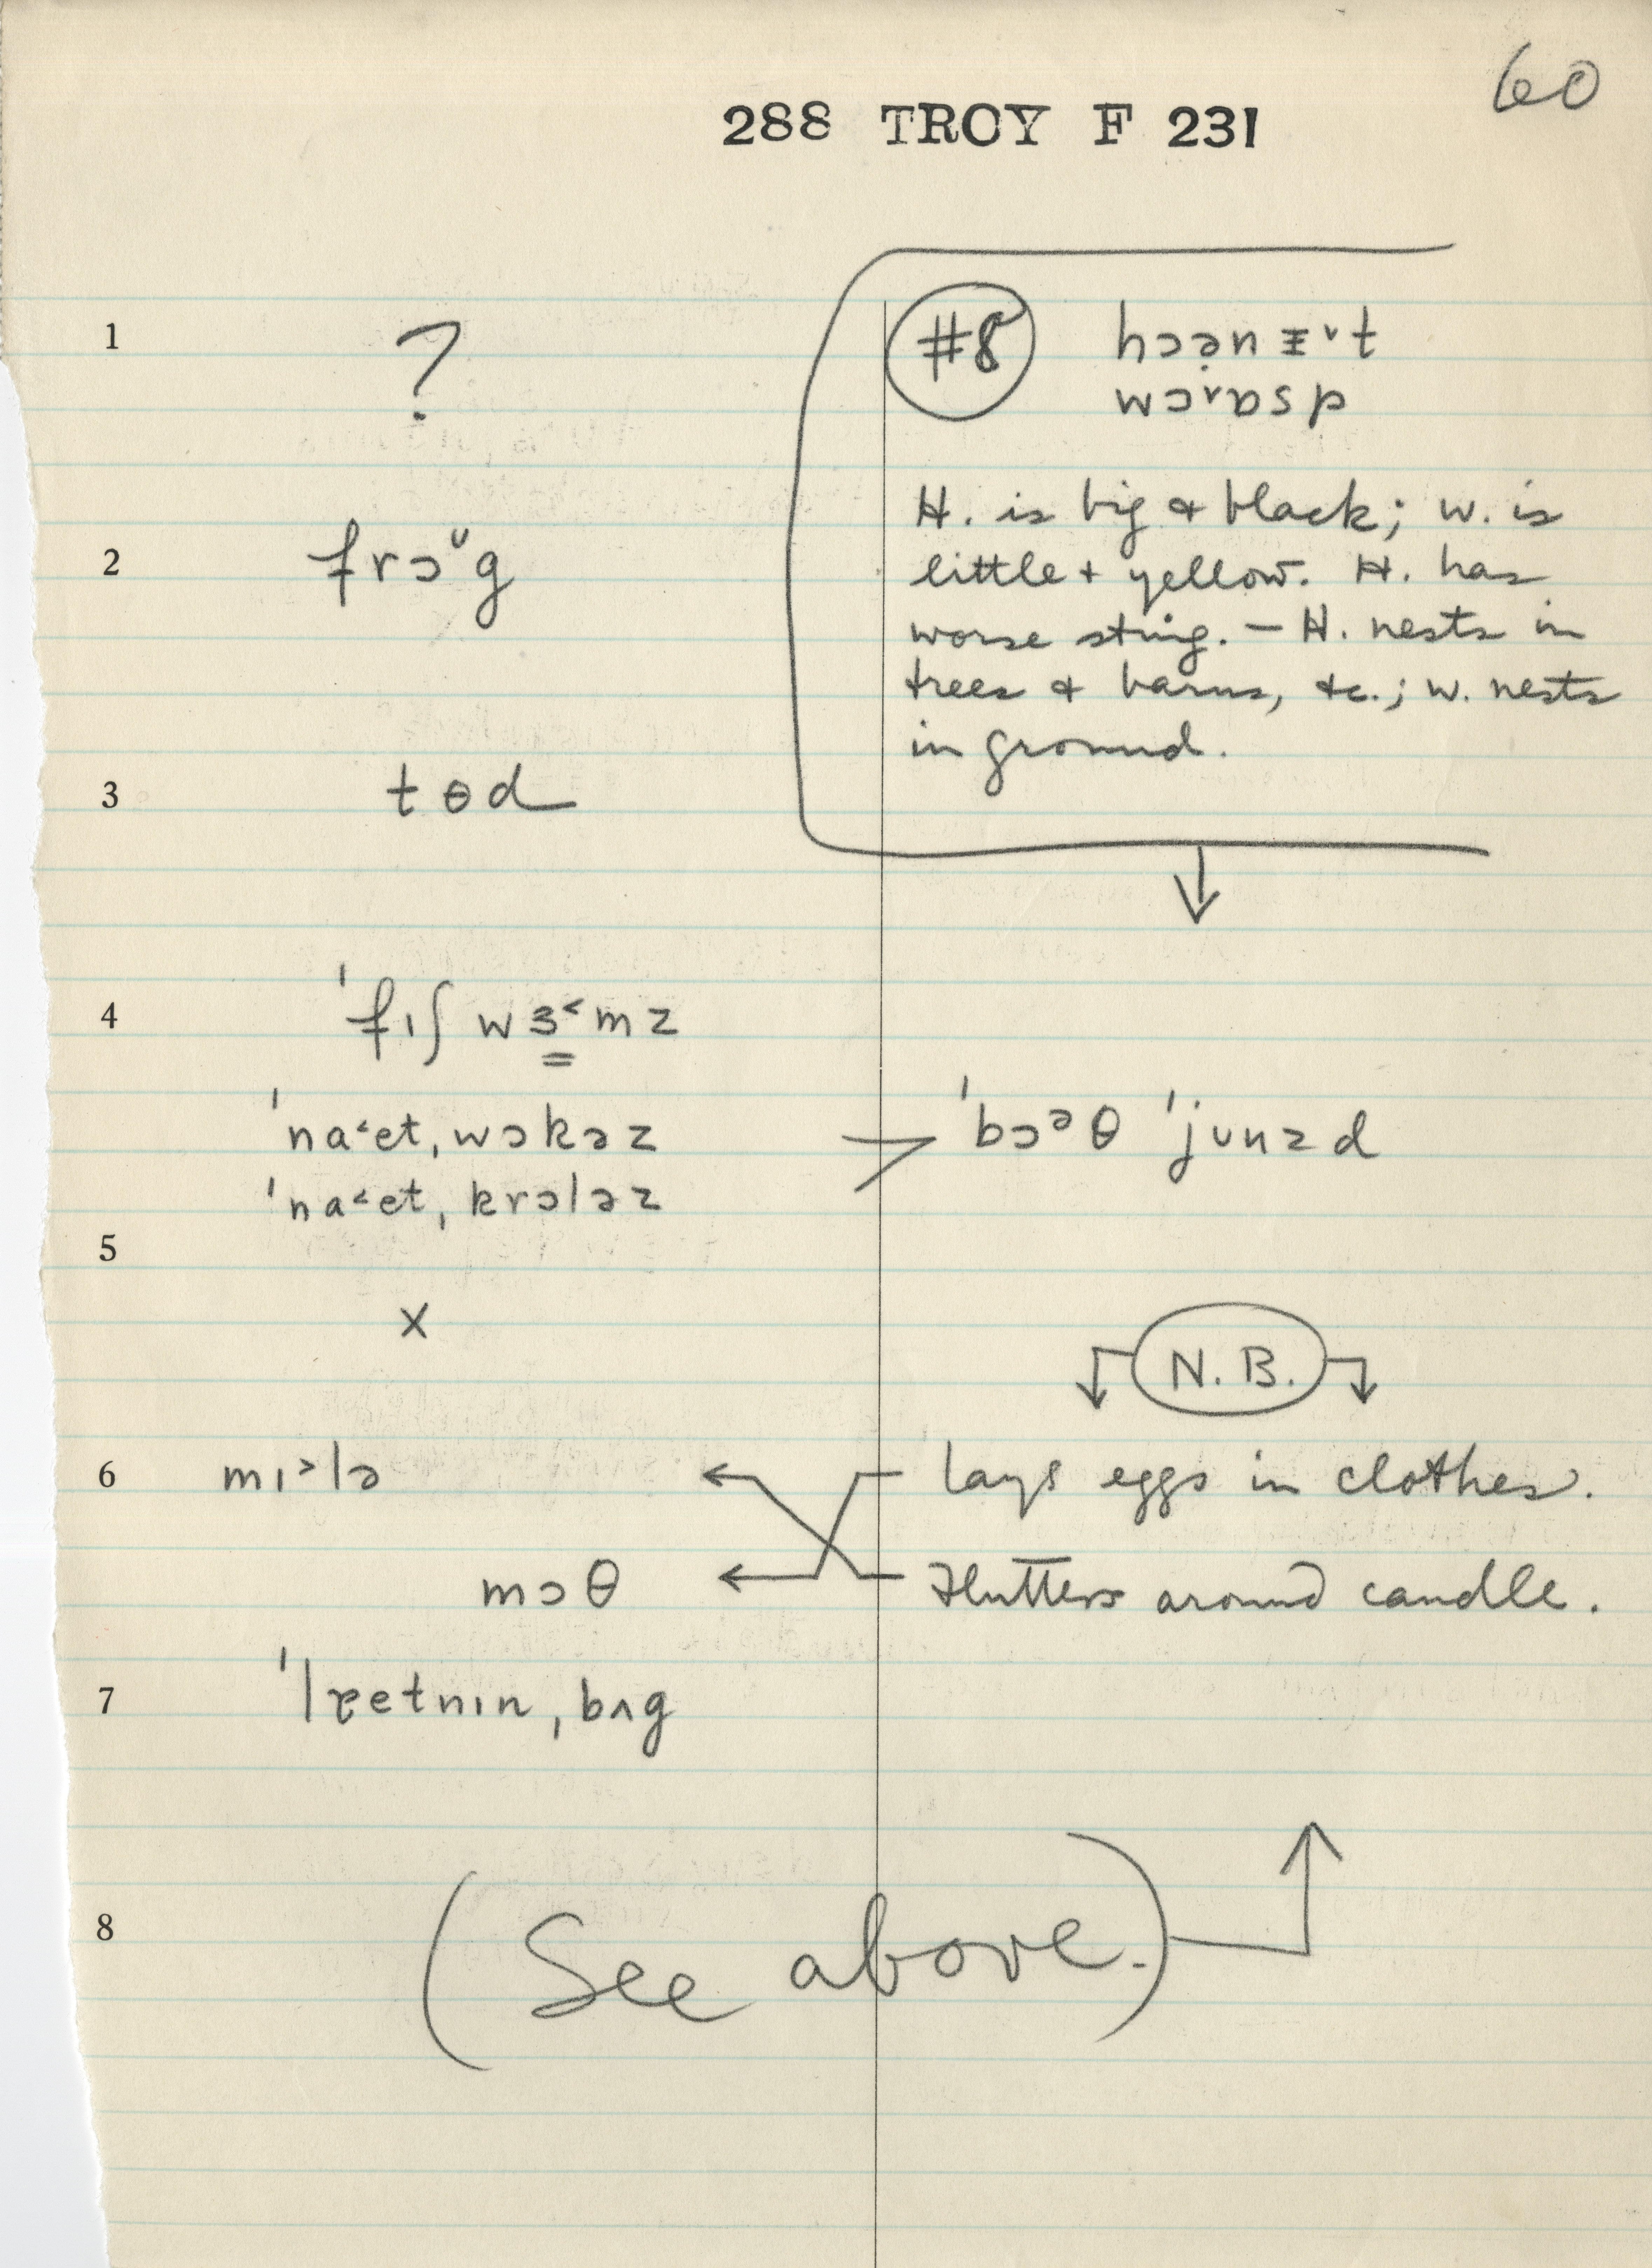 60
288 TROY F 231
1 ?
#8 hɔən ᵻ˅t
wɔ˅ɒsp
H. is big & black; W. is
little + yellow. H. has
worse sting. – H. nests in
trees & barns, &c.; W. nests
in ground.
2 frɔᶸg
3 tɵd
4 ˈfɪʃ wɜ˂mz
ˈna˂et, wɔkəz > ˈbɔᵊθ ˈjunzd
ˈna˂et, krɔləz
5
x
N.B.
6 mɪ˃lə lays eggs in clothes.
mɔθ Flutters around candle.
7 ˈlɐetnɪn, bʌg
8 (See above.)